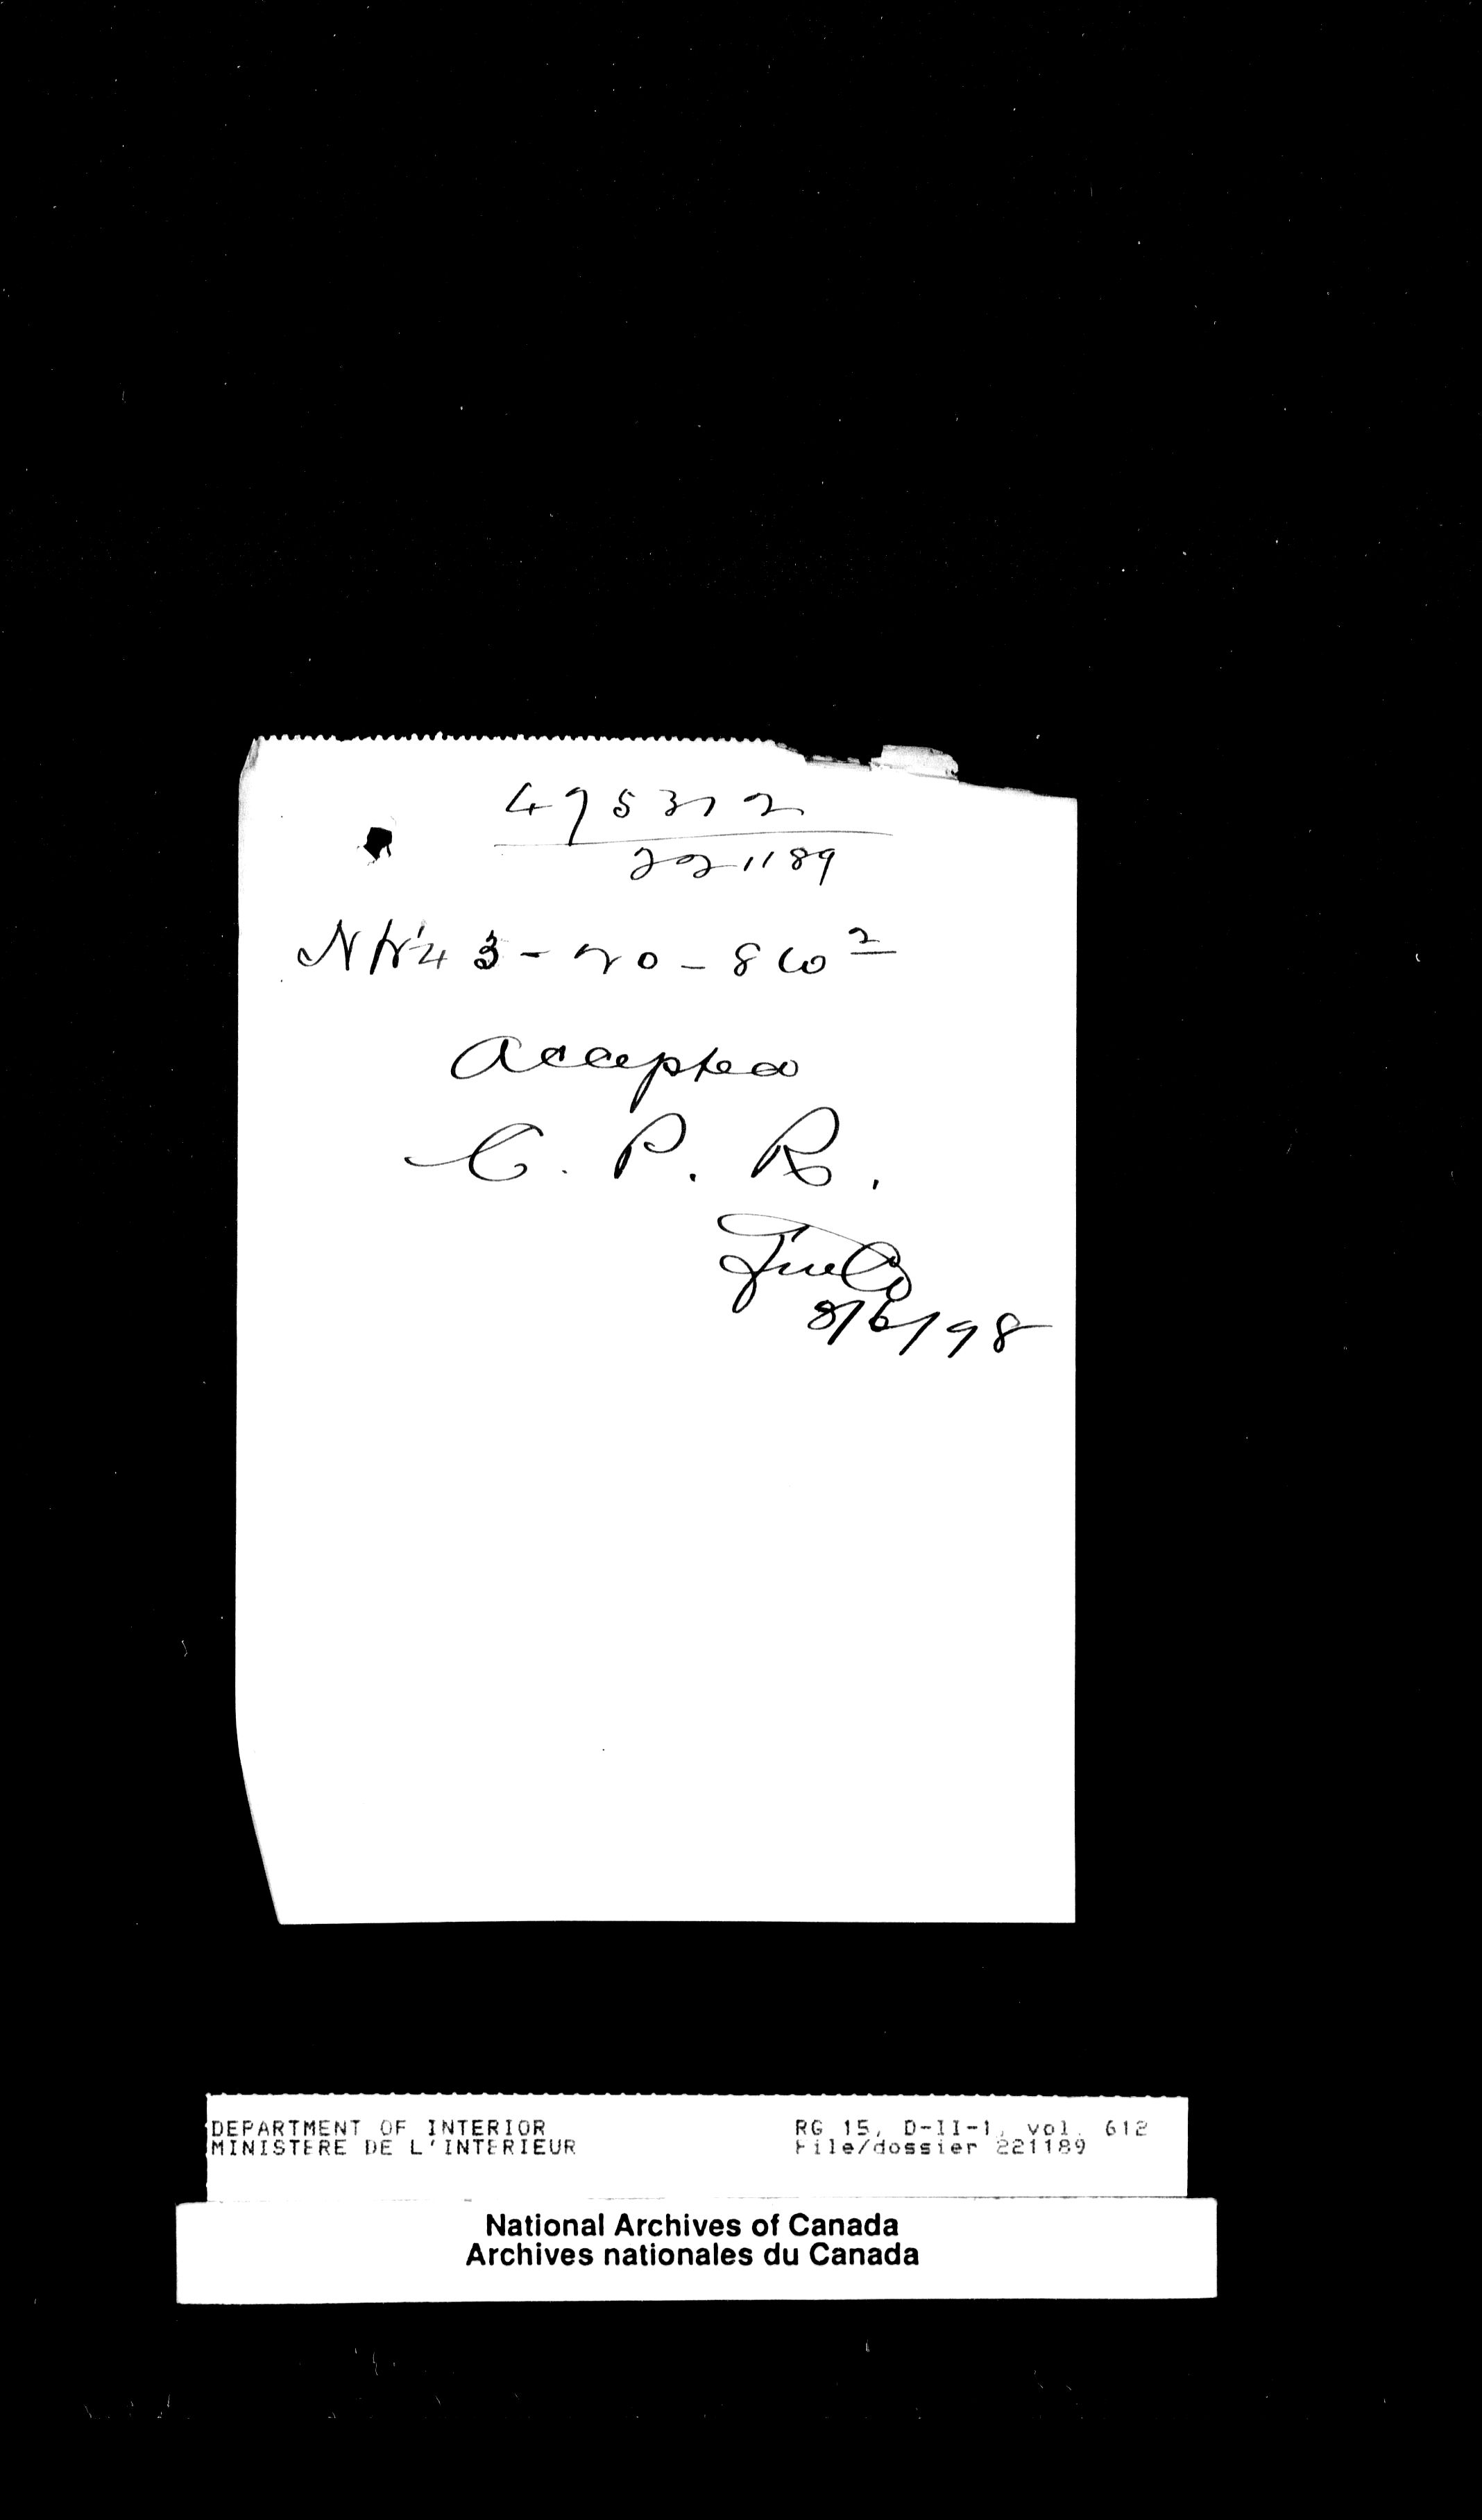 495372
221189
NW¼ 3 - 20 - 8 W 2
Accepted
C. P. R.
8/6/98
DEPARTMENT OF INTERIOR
MINISTERE DE L'INTERIEUR
RG 15, D-II-1, vol. 612
File/dossier 221189
National Archives of Canada
Archives nationales du Canada